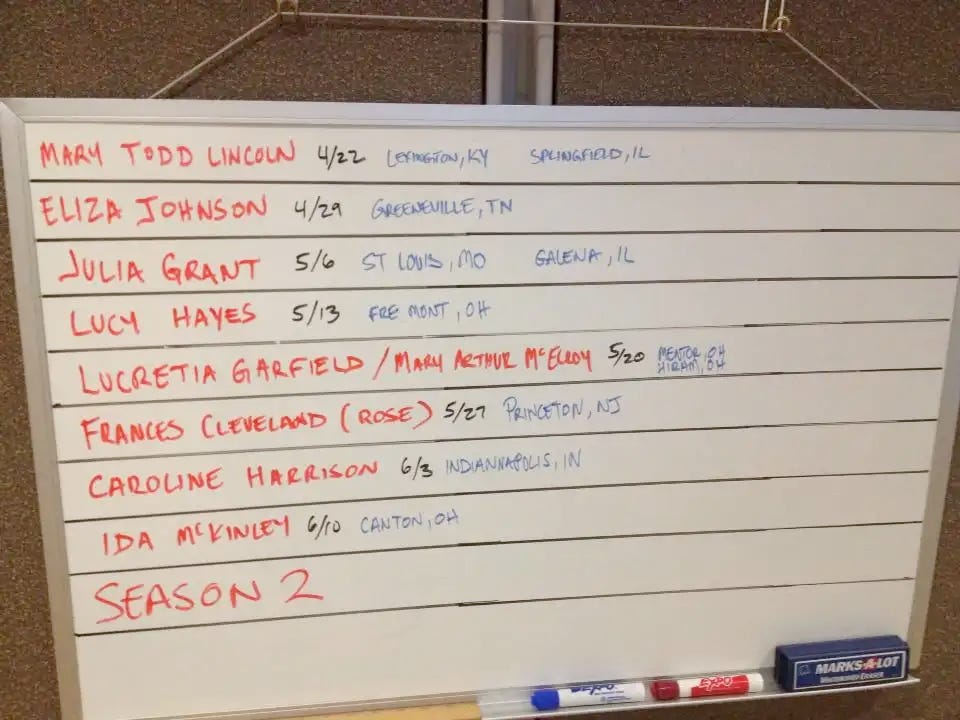 MARY TODD LINCOLN 4/22 LEXINGTON, KY SPRINGFIELD, IL
ELIZA JOHNSON 4/29 GREENEVILLE, TN
JULIA GRANT 5/6 ST LOUIS, MO GALENA, IL
LUCY HAYES 5/13 FREMONT, OH
LUCRETIA GARFIELD / MARY ARTHUR McELROY 5/20 MENTOR, OH
HIRAM, OH
FRANCES CLEVELAND (ROSE) 5/27 PRINCETON, NJ
CAROLINE HARRISON 6/3 INDIANNAPOLIS, IN
IDA McKINLEY 6/10 CANTON, OH
SEASON 2
MARKS-A-LOT
WHITEBOARD ERASER
EXPO
EXPO